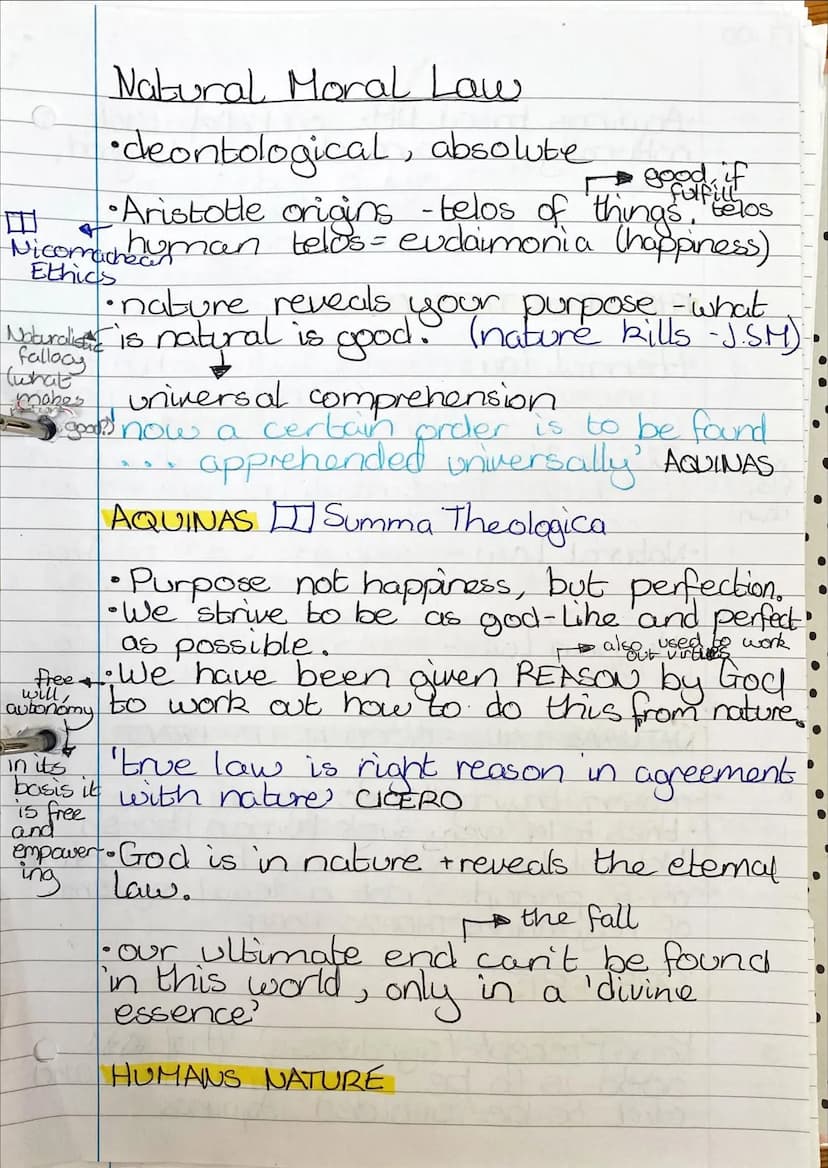 Natural Moral Law
•deontological, absolute
→ good if
fulfill
•Aristotle origins - telos of things. telos
human telos = eudaimonia (happiness)
Nicomachean
Ethics
•nature reveals your purpose - what
is natural is good. (nature kills - J.SM)
Naturalistic
fallacy
(what
makes
good?)
↓
universal comprehension
'now a certain order is to be found
... apprehended universally' AQUINAS
AQUINAS Summa Theologica
•Purpose not happiness, but perfection.
•We strive to be as god-like and perfect
as possible.
→ also used to work
out virtues
•We have been given REASON by God
to work out how to do this from nature.
free
will,
autonomy
in its
basis it
is free
and
empower-
ing
'true law is right reason in agreement
with nature' CICERO
•God is in nature + reveals the eternal
law.
→ the fall
•our ultimate end can't be found
in this world, only in a 'divine
essence'
HUMANS NATURE